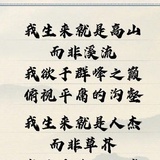 我生来就是高山
而非溪流
我欲于群峰之巅
俯视平庸的沟壑
我生来就是人杰
而非草芥